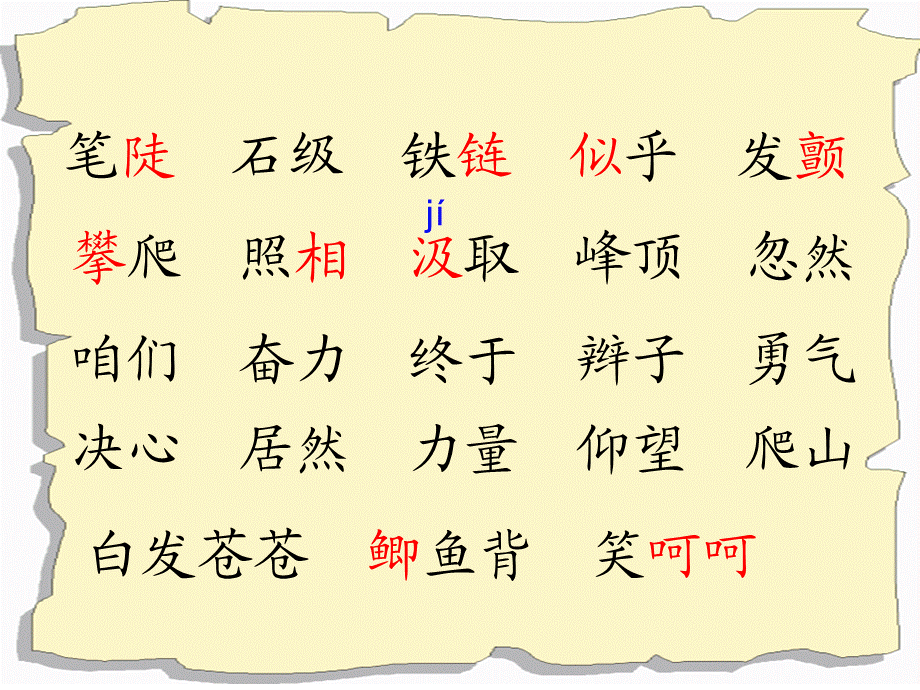 笔陡 石级 铁链 似乎 发颤
jí
攀爬 照相 汲取 峰顶 忽然
咱们 奋力 终于 辫子 勇气
决心 居然 力量 仰望 爬山
白发苍苍 鲫鱼背 笑呵呵